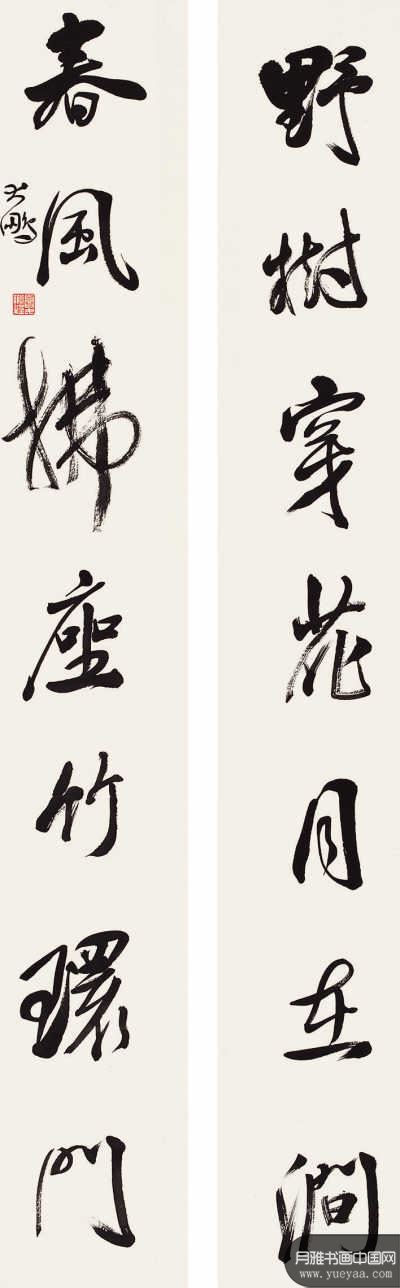 野樹穿花月在澗
春風拂座竹環門
大鵬
月雅书画中国网
www.yueyaa.com